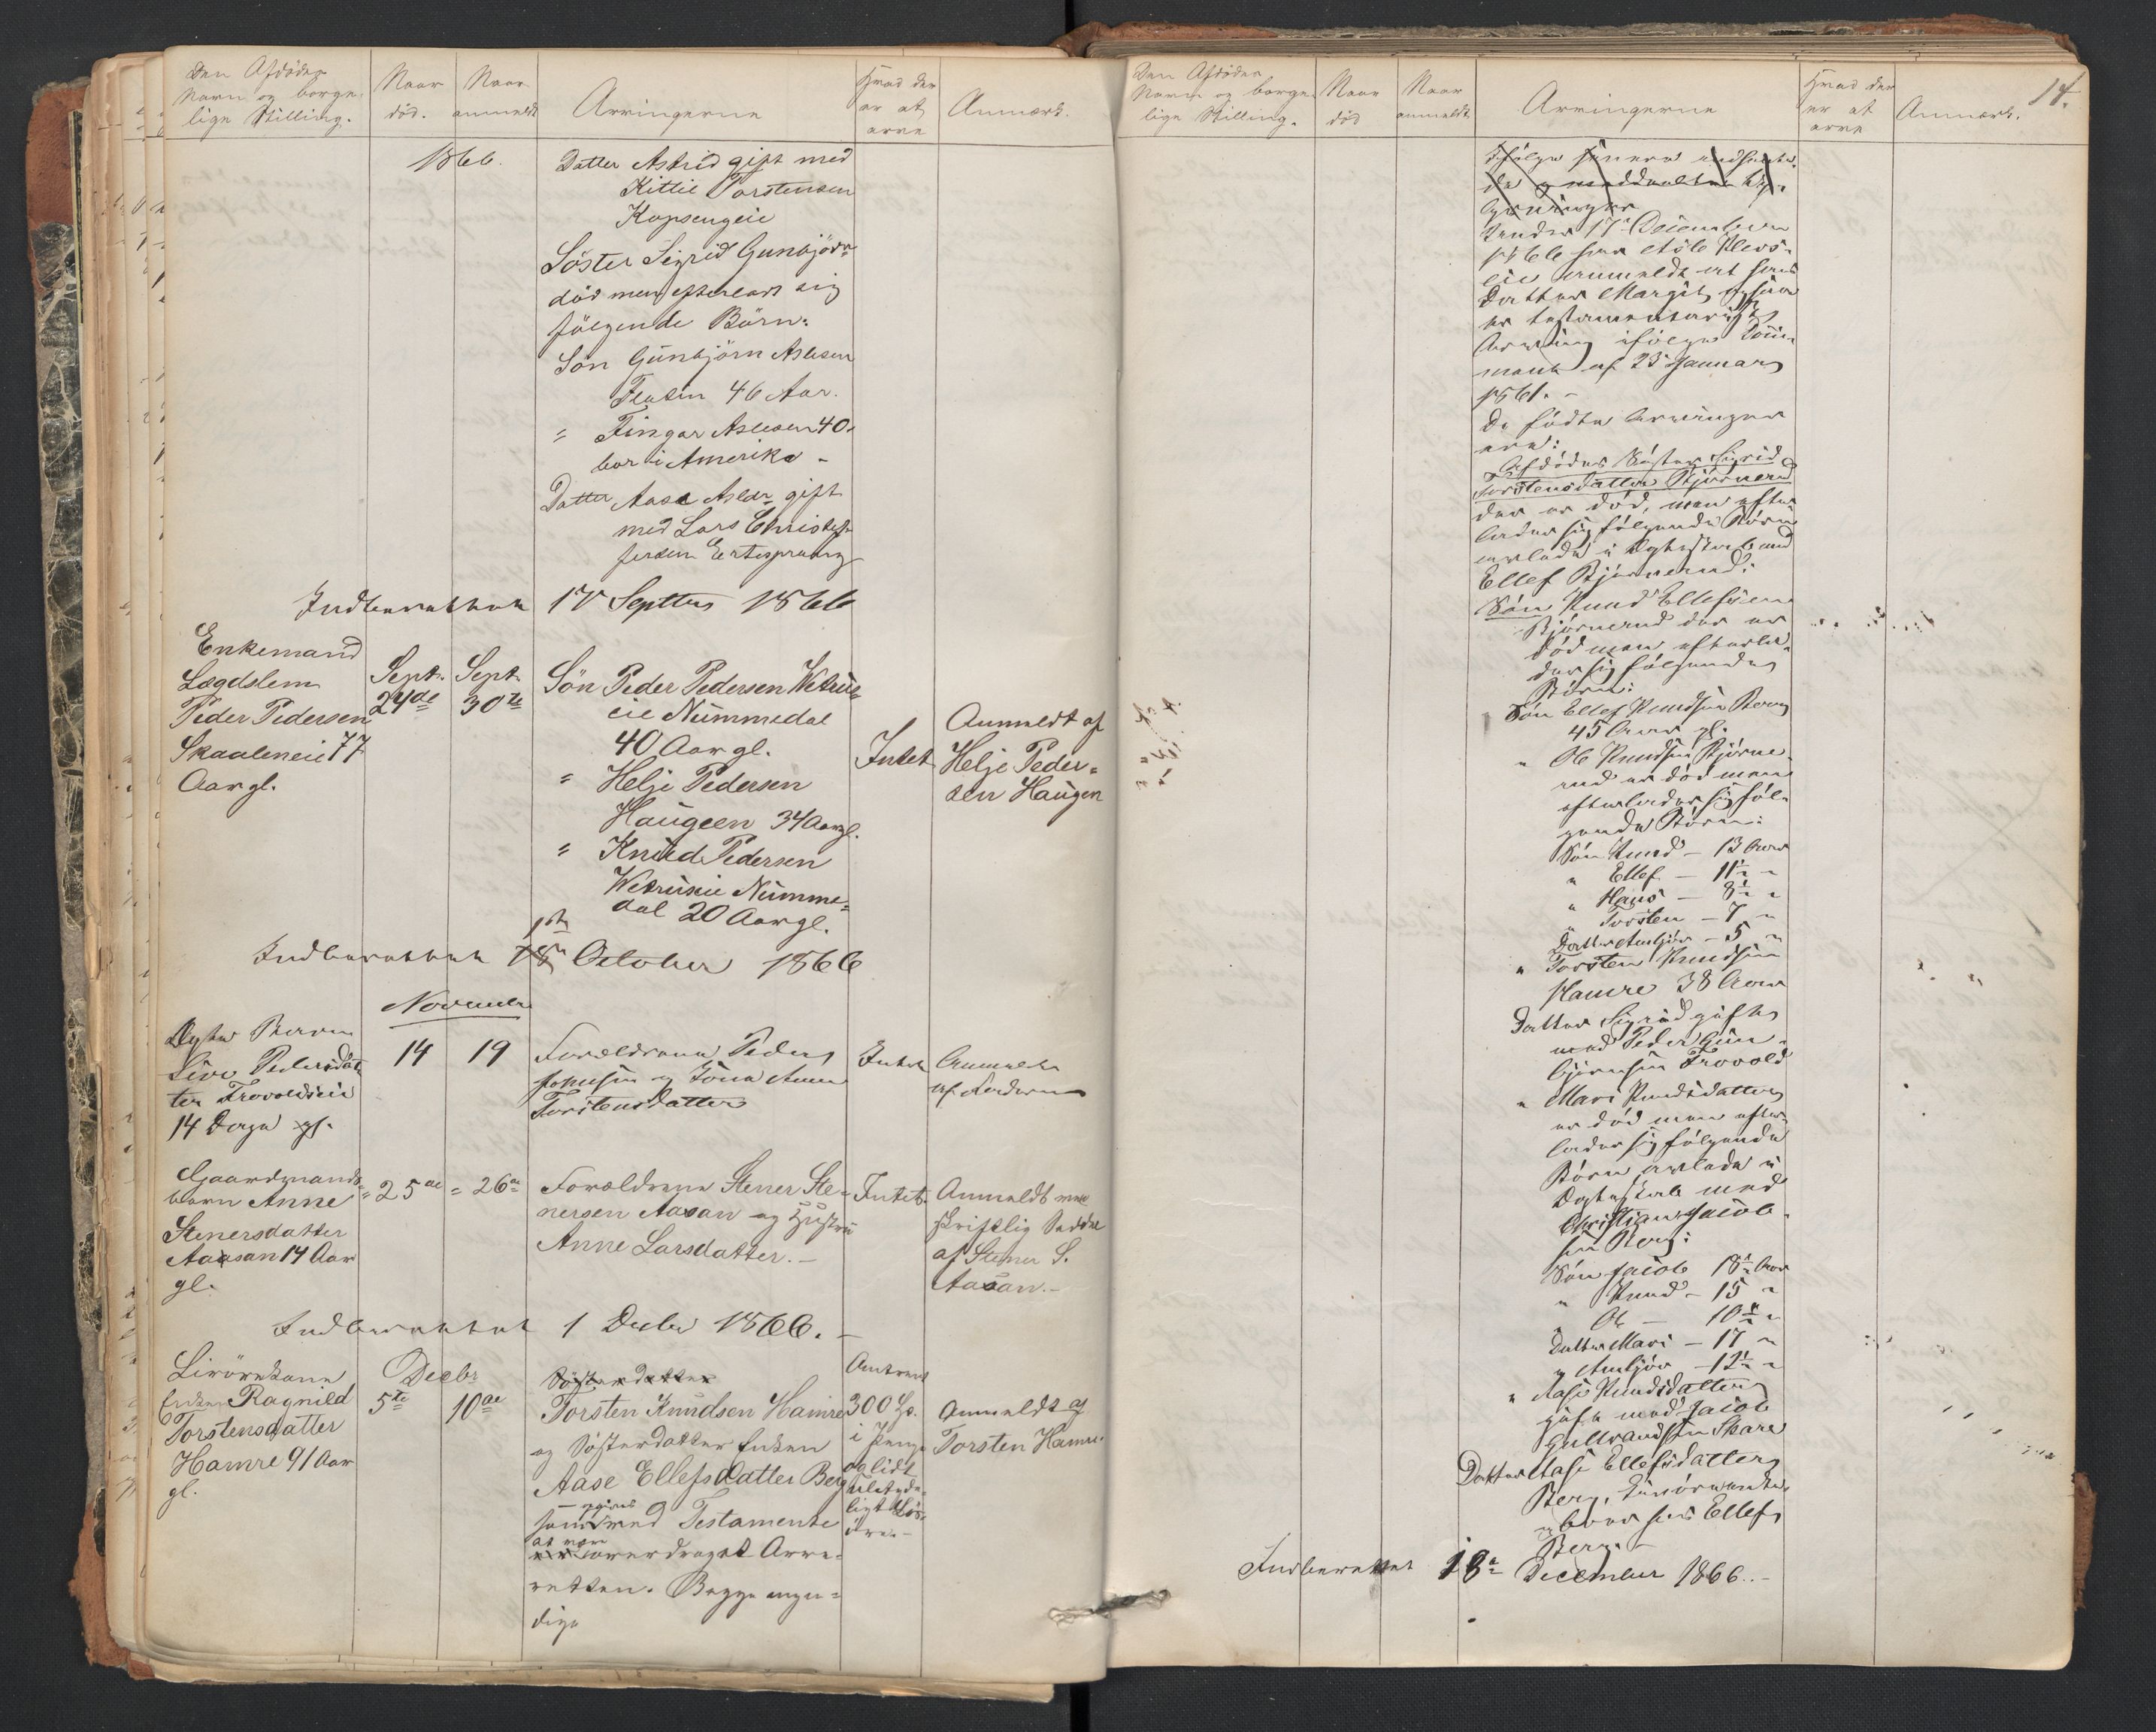 Den Afdødes
Navn og borger-
lige Stilling.
Naar
død.
Naar
anmeldt
Arvingerne
Hvad der
er at
arve
Anmærk.
1866.
Datter Astrid gift med
Kittil Torstensen
Kopsengeie
Söster Sigrid Gunbjörs-
död men efterlader sig
fölgende Börn:
Sön Gunbjörn Aslesen
46 Aar.
" Fingar Aslesen 40.
bor i Amerika -
Datter Aase Aslesd. gift
med Lars Christof-
fersen Ertesprang
Indberettet 17 Septbr 1866
Enkemand
Lægdslem
Peder Pedersen
Skaaleneie 77
Aar gl.
Sept.
24de
Sept.
30te
Sön Peder Pedersen
eie Nummedal
40 Aar gl.
" Helje Pedersen
Haugeen 34 Aar gl.
" Knud Pedersen
Numme-
dal 20 Aar gl.
Intet
Anmeldt af
Helje Peder-
sen Haugen
Indberettet October 1866
November
Ægte Barn
Live Pedersdat-
ter Frovoldseie
14 Dage gl.
14
19
Forældrene Peder
Johnsen og Kone Anne
Torstensdatter
Intet
Anmeldt
af Faderen
Gaardmands-
barn Anne
Stenersdatter
Aaasan 14 Aar
gl.
" 25de
" 26de
Forældrene Stener Ste-
nersen Aasan og Hustru
Anne Larsdatter. -
Intet
Anmeldt ved
skriftlig Seddel
af Stener S.
Aasan. -
Indberettet 1 Decbr 1866. -
Livörekone
Enken Ragnild
Torstensdatter
Hamre 91 Aar
gl.
Decbr
5te
10de
Søsterdatter
Torsten Knudsen Hamre
og Søsterdatter Enken
Aase Ellefsdatter Berg
som angives ved Testamente
at være overdraget Arve-
retten. Begge myn-
dige
Omtrent
300 Sp.
i Penge
og lidt
ubetyde-
ligt Lös-
öre. -
Anmeldt af
Torsten Hamre.
Den Afdødes
Navn og borger-
lige Stilling.
Naar
død
Naar
anmeldt.
Arvingerne
Hvad der
er at
arve
Anmærk.
14.
Ifølge senere indhente-
de og meddeelte
Under 17de December
1866 har
eie anmeldt at hans
Datter Margit ogsaa
er testamentarisk
Arving ifølge Doku-
ment af 23 Januar
1861. -
De fødte Arvinger
ere:
Afdødes Søster Sigrid
Torstensdatter Bjørnerud
der er død, men efter-
lader sig følgende Børn
avlede i Ægteskab med
Ellef Bjørnerud:
Søn Knud Ellefsen
Bjørnerud der er
død men efterla-
der sig følgende
Børn:
Søn Ellef Knudsen Berg
45 Aar gl.
" Ole Knudsen Bjørne-
rud er død men
efterlader sig føl-
gende Børn:
Søn Knud - 13 Aar
" Ellef - 11½ "
" Hans - 8½ "
" Torsten - 7 "
Datter Ambjør - 5 "
" Torsten Knudsen
Hamre 38 Aar
Datter Sigrid gift
med Peder Gun-
bjørnsen Frovold
" Mari Knudsdatter
er død men efter-
lader sig følgende
Børn avlede i
Ægteskab med
Christian Jacob-
sen Berg:
Søn Jacob 18½ Aar
" Knud - 15 "
" Ole - 10½ "
Datter Mari - 17 "
" Ambjør - 12½ "
" Aase Knudsdatter
gift med Jacob
Gulbrandsen Skare
Datter Aase Ellefsdatter
Berg,
hos Ellef
Berg. -
Indberettet 18de December 1866. -